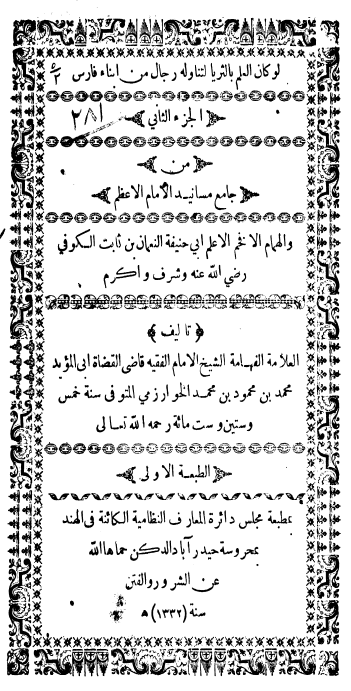 لو كان العلم بالثريا لتناوله رجال من ابناء فارس
الجزء الثاني
٢٨١
من
جامع مسانيد الامام الاعظم
والهمام الافخم الاعلم ابي حنيفة النعمان بن ثابت الكوفي
رضي الله عنه وشرف واكرم
تاليف
العلامة الفهامة الشيخ الامام الفقيه قاضى القضاة ابى المؤيد
محمد بن محمود بن محمد الخوارزمي المتوفى سنة خمس
وستين وست مائة رحمه الله تعالى
الطبعة الاولى
بمطبعة مجلس دائرة المعارف النظامية الكائنة فى الهند
بمحروسة حيدرآباد الدكن حماها الله
عن الشرور والفتن
سنة (١٣٣٢) ه